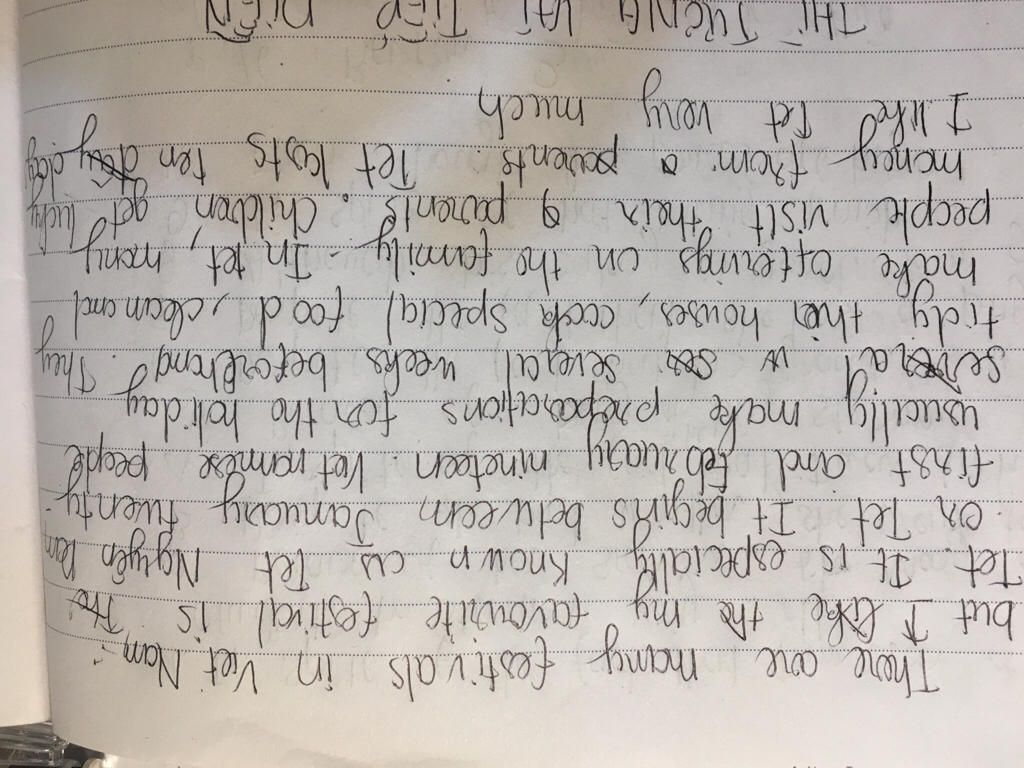 There are many festivals in Viet Nam,
but I like the my favourite festival is The
Tet. It is especially known as Tet Nguyên Đan
or Tet. It begins between January twenty-
first and February nineteen. Vietnamese people
usually make preparations for the holiday
several w ses several weeks beforehand. They
tidy their houses, cook special food, clean and
make offerings on the family. In tet, many
people visit their g parents. Children get lucky
money from a parents. Tet lasts ten day day
I like Tet very much
THÌ TƯƠNG LAI TIẾP DIỄN